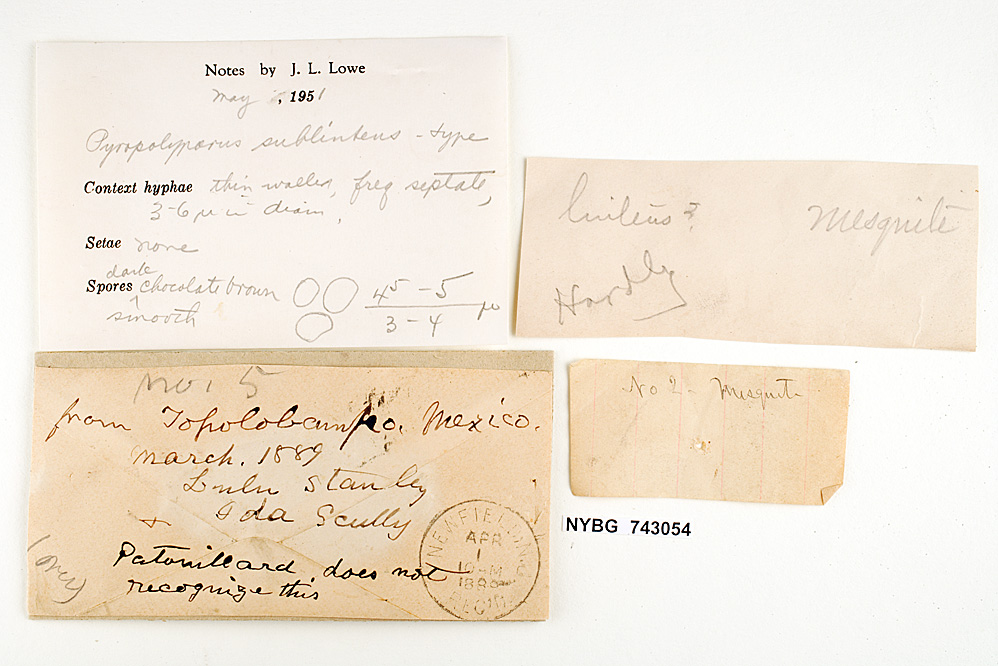 Notes by J. L. Lowe
May , 1951
Pyropolyporus sublinteus - type
Context hyphae thin walled, freq septate,
3-6 μ in diam,
Setae none
dark
Spores chocolate brown
smooth
4⁵ - 5
3 - 4 μ
linteus?
Mesquite
Hardly
no. 5
from Topolobampo. Mexico.
March. 1889
Lulu Stanley
+ Ida Scully
Patouillard does not
recognize this
(over)
NEWFIELD, N.J.
APR
1
10 AM
REC'D
No 2 - Mesquit
NYBG 743054